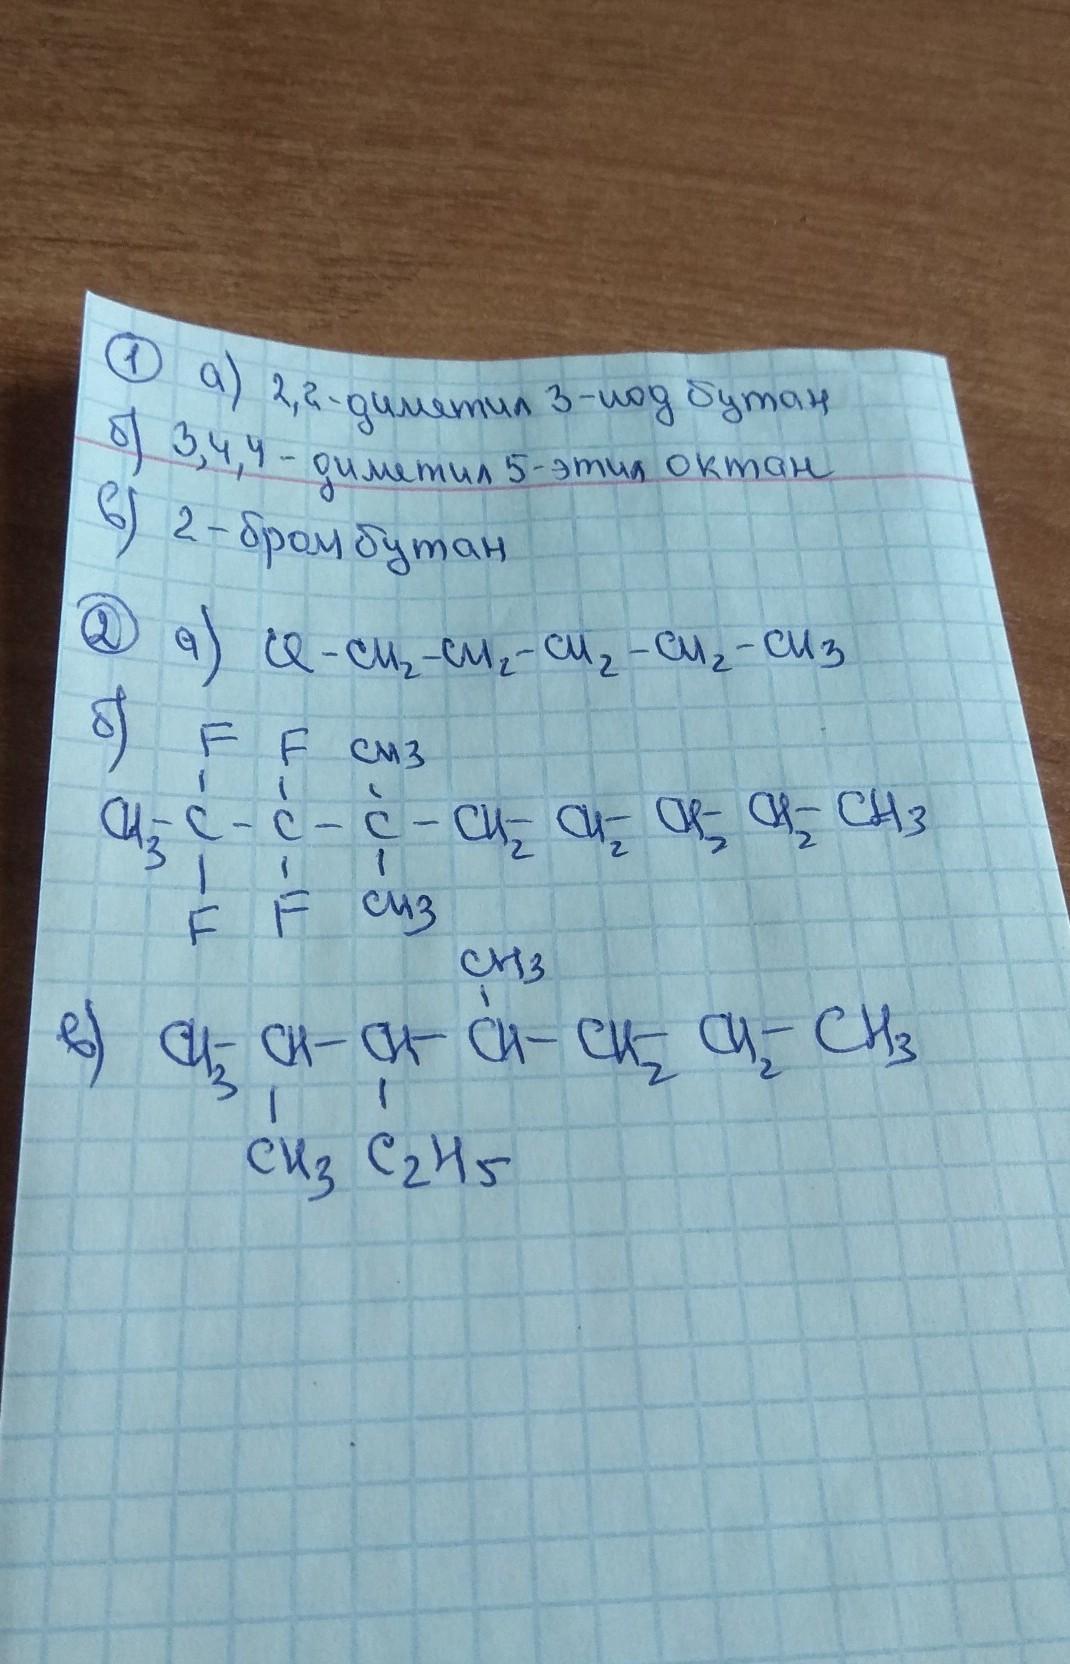 ① а) 2,2-диметил 3-иод бутан
б) 3,4,4-диметил 5-этил октан
в) 2-бром бутан
② а) Cl-CH2-CH2-CH2-CH2-CH3
б) F F CH3
CH3-C-C-C-CH2-CH2-CH2-CH2-CH3
F F CH3
CH3
в) CH3-CH-CH-CH-CH2-CH2-CH3
CH3 C2H5